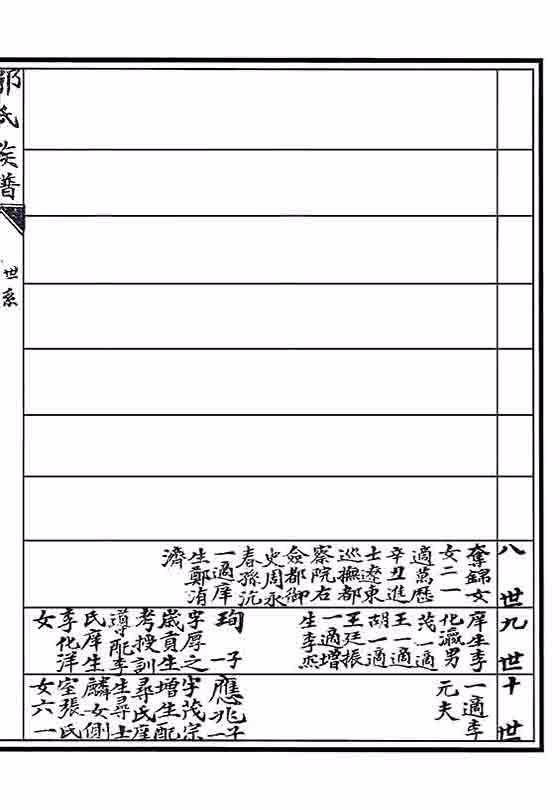 八世
奪錦女
女二一
適萬歷
辛丑進
士遼東
巡撫都
察院右
僉都御
史周永
春孫沆
一適庠
生鄭洧
濟
九世
庠生李
化瀛男
茂一適
王一適
胡一適
王廷振
一適增
生李烝
珣 一子
字厚之
歲貢生
考授訓
導配李
氏庠生
李化洋
女
十世
一適李
元夫
應兆 一子
字茂宗
增生配
尋氏庠
生尋士
麟女側
室張氏
女六一
郭氏族譜
世系